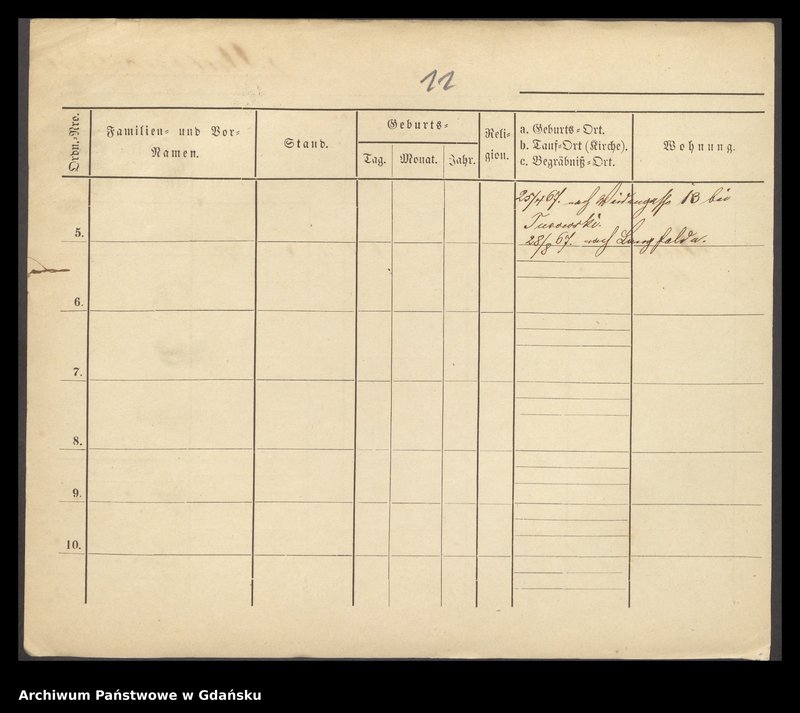 11
Ordn.-Nro.
Familien- und Vor-
Namen.
Stand.
Geburts-
Tag.
Monat.
Jahr.
Reli-
gion.
a. Geburts-Ort.
b. Tauf-Ort (Kirche).
c. Begräbniß-Ort.
Wohnung.
67. nach Weidengasse 13 bei
Turowski.
28/8 67. nach Langfelde.
5.
6.
7.
8.
9.
10.
Archiwum Państwowe w Gdańsku